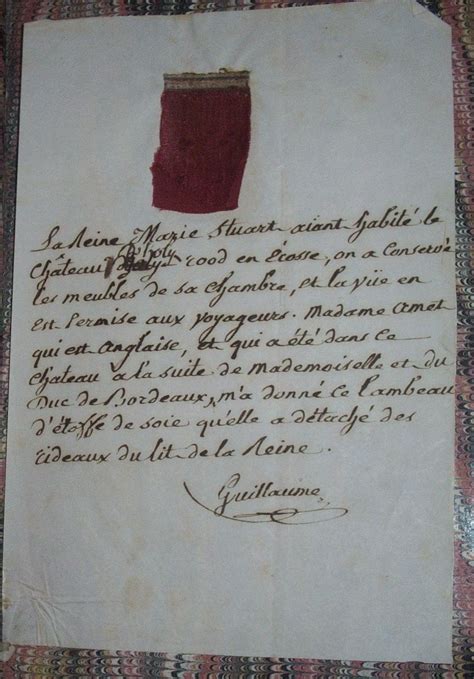 La Reine Marie Stuart aiant habité le
Château d'holy rood en Écosse, on a Conservé
les meubles de sa Chambre, et la vüe en
Est Permise aux Voyageurs. Madame Amet
qui est Anglaise, et qui a été dans ce
Chateau à la suite de mademoiselle et du
Duc de Bordeaux, m'a donné ce lambeau
d'étoffe de soie qu'elle a détaché des
rideaux du lit de la Reine.
Guillaume